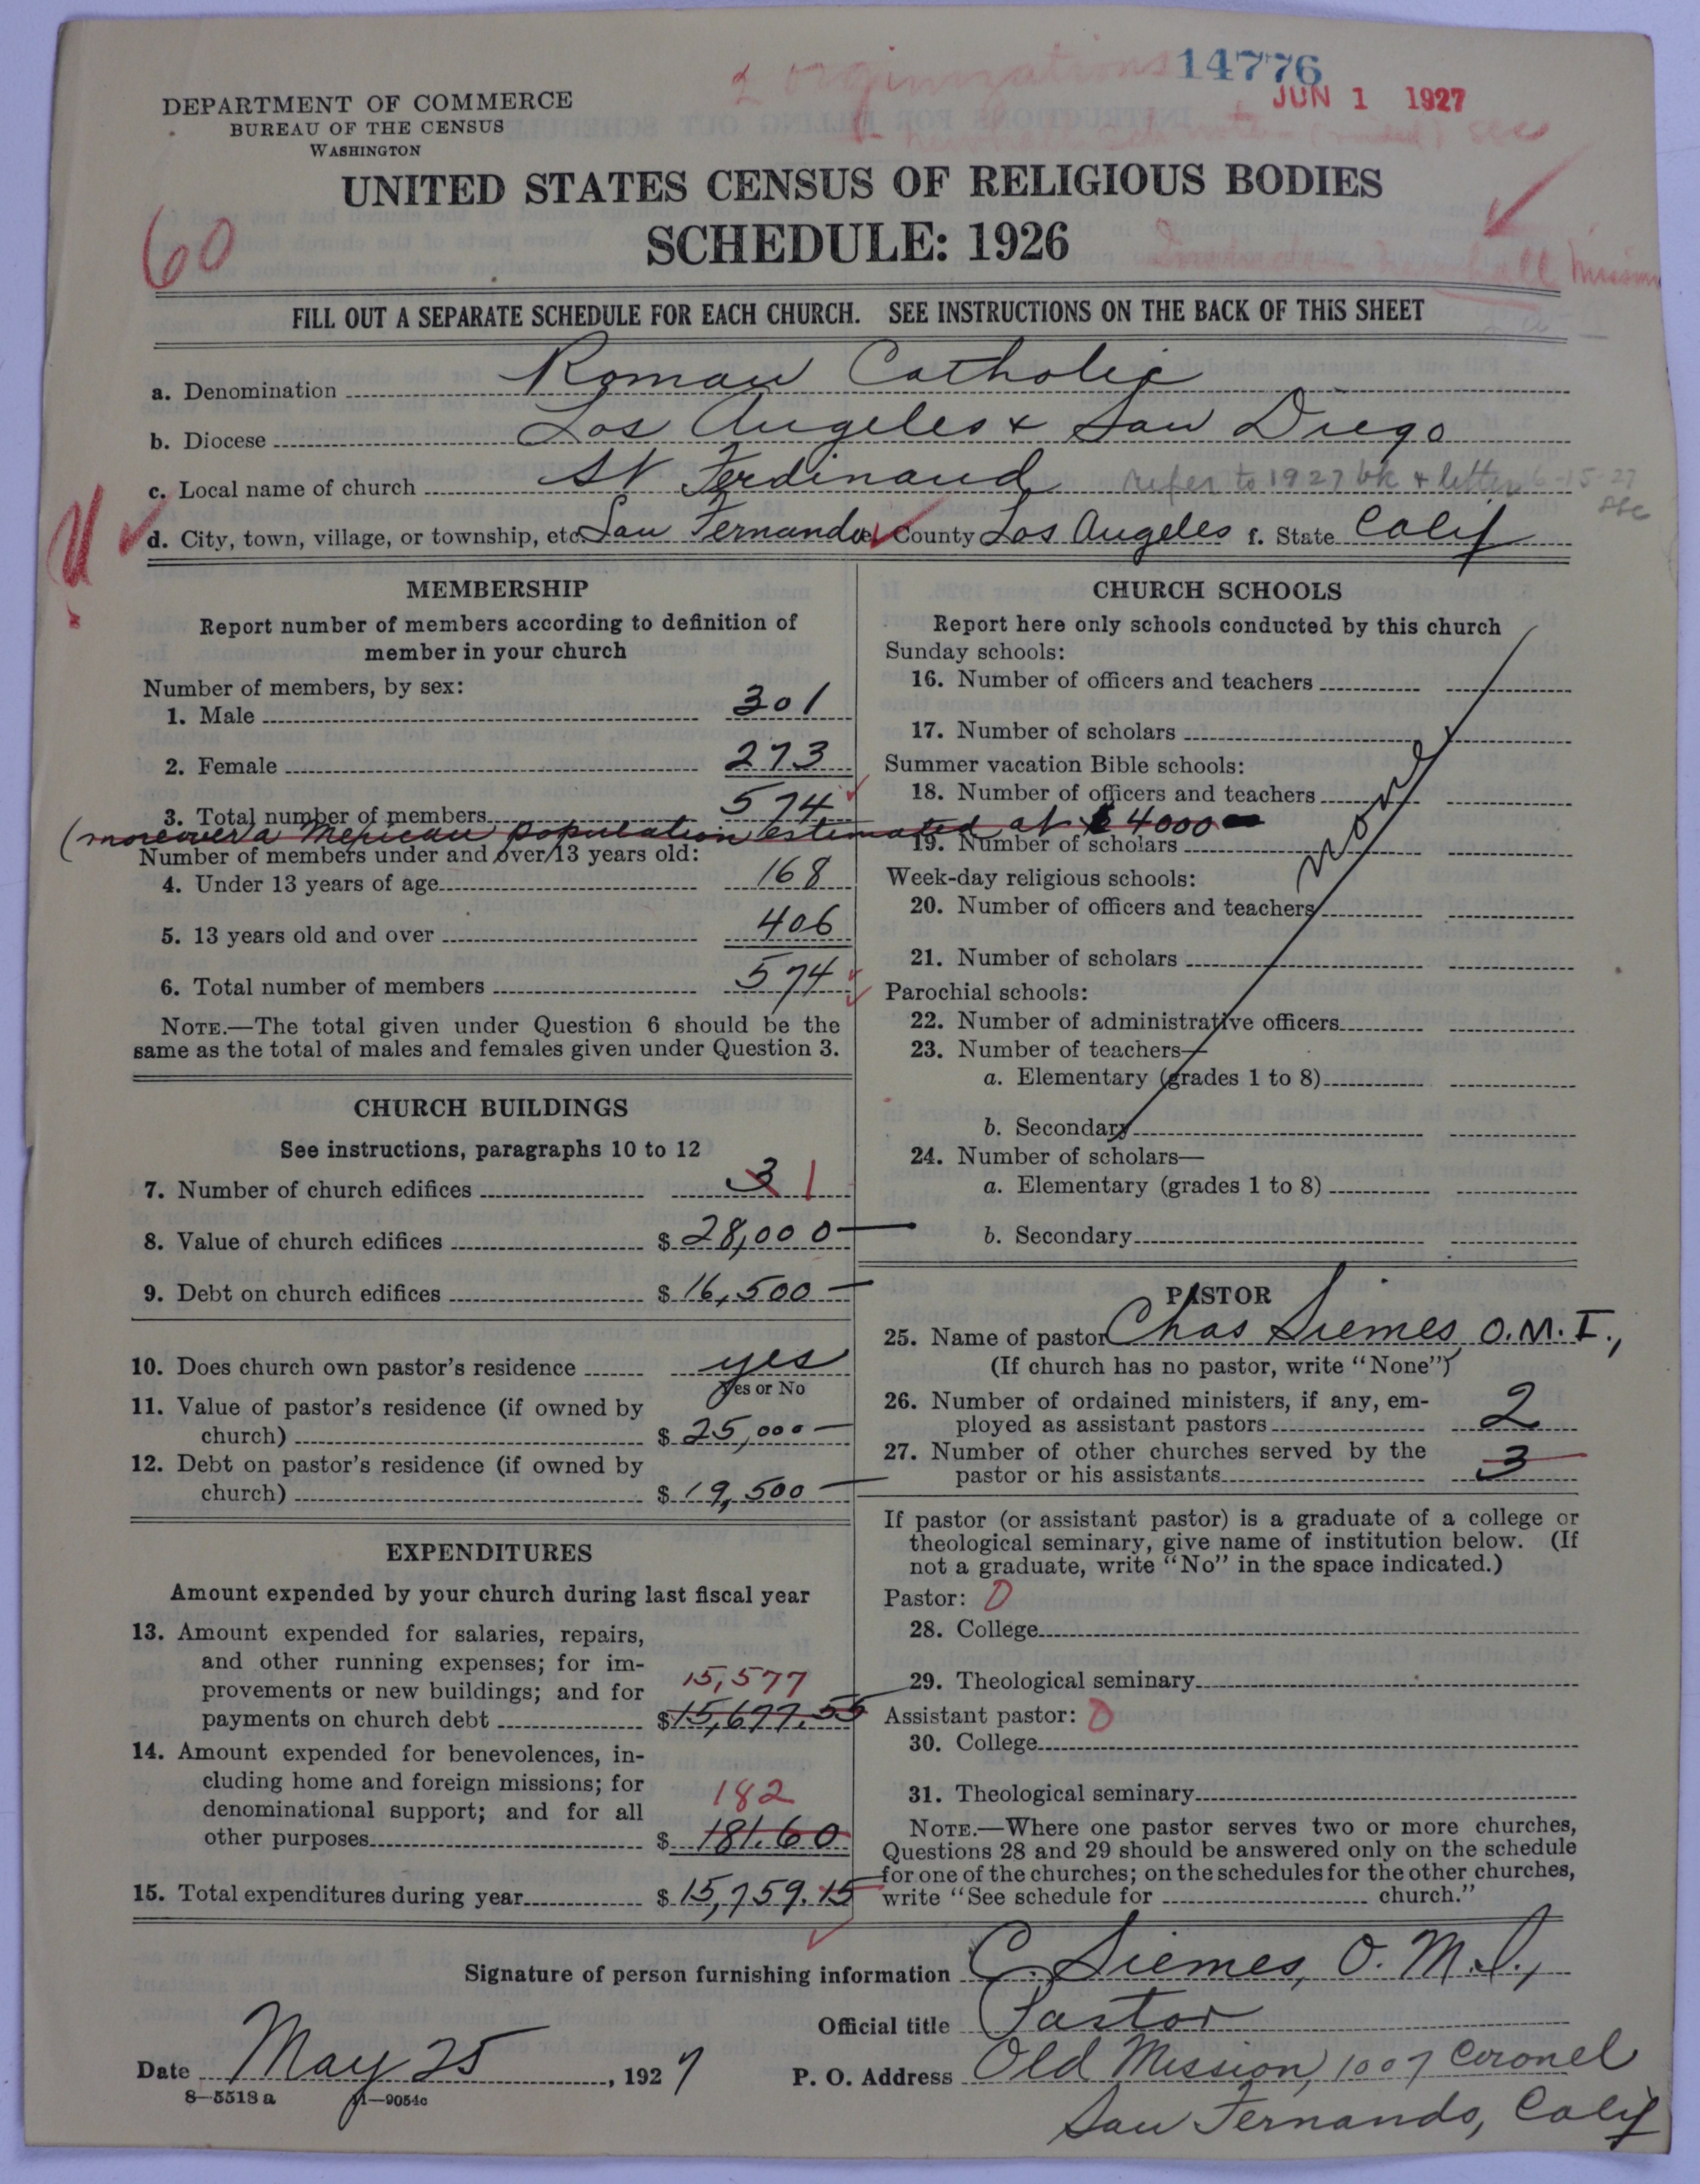 2 orginizations 14776
JUN 1 1927
DEPARTMENT OF COMMERCE
BUREAU OF THE CENSUS
WASHINGTON
UNITED STATES CENSUS OF RELIGIOUS BODIES
SCHEDULE: 1926
60
Newhall Mission
FILL OUT A SEPARATE SCHEDULE FOR EACH CHURCH. SEE INSTRUCTIONS ON THE BACK OF THIS SHEET
a. Denomination Roman Catholic
b. Diocese Los Angeles & San Diego
c. Local name of church St Ferdinand refer to 1927 bk & letter 6-15-27
d. City, town, village, or township, etc. San Fernando e. County Los Angeles f. State Calif
MEMBERSHIP
Report number of members according to definition of
member in your church
Number of members, by sex:
1. Male 301
2. Female 273
3. Total number of members 574
(moreover a Mexican population estimated at 4000
Number of members under and over 13 years old:
4. Under 13 years of age 168
5. 13 years old and over 406
6. Total number of members 574
NOTE.—The total given under Question 6 should be the
same as the total of males and females given under Question 3.
CHURCH BUILDINGS
See instructions, paragraphs 10 to 12
7. Number of church edifices 3 1
8. Value of church edifices $ 28,000—
9. Debt on church edifices $ 16,500—
10. Does church own pastor's residence yes
Yes or No
11. Value of pastor's residence (if owned by
church) $ 25,000—
12. Debt on pastor's residence (if owned by
church) $ 19,500—
EXPENDITURES
Amount expended by your church during last fiscal year
13. Amount expended for salaries, repairs,
and other running expenses; for im-
provements or new buildings; and for 15,577
payments on church debt $ 15,677.55
14. Amount expended for benevolences, in-
cluding home and foreign missions; for
denominational support; and for all 182
other purposes $ 181.60
15. Total expenditures during year $ 15,759.15
CHURCH SCHOOLS
Report here only schools conducted by this church
Sunday schools:
16. Number of officers and teachers
17. Number of scholars
Summer vacation Bible schools:
18. Number of officers and teachers
19. Number of scholars
Week-day religious schools:
20. Number of officers and teachers
21. Number of scholars
Parochial schools:
22. Number of administrative officers
23. Number of teachers—
a. Elementary (grades 1 to 8)
b. Secondary
24. Number of scholars—
a. Elementary (grades 1 to 8)
b. Secondary
PASTOR
25. Name of pastor Chas Siemes O.M.I.,
(If church has no pastor, write "None")
26. Number of ordained ministers, if any, em-
ployed as assistant pastors 2
27. Number of other churches served by the
pastor or his assistants 3
If pastor (or assistant pastor) is a graduate of a college or
theological seminary, give name of institution below. (If
not a graduate, write "No" in the space indicated.)
Pastor: 0
28. College
29. Theological seminary
Assistant pastor: 0
30. College
31. Theological seminary
NOTE.—Where one pastor serves two or more churches,
Questions 28 and 29 should be answered only on the schedule
for one of the churches; on the schedules for the other churches,
write "See schedule for church."
Signature of person furnishing information C. Siemes, O.M.I.,
Official title Pastor
Date May 25, 1927 P. O. Address Old Mission, 1007 Coronel
San Fernando, Calif
8—5518a 11—9054c